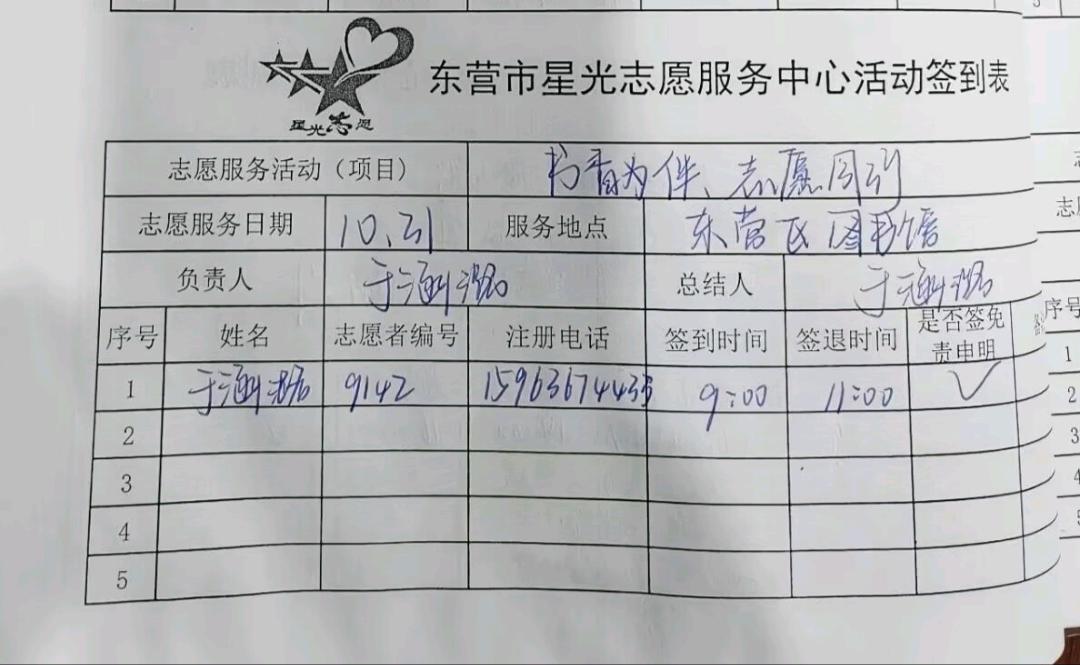 星光志愿
东营市星光志愿服务中心活动签到表
志愿服务活动（项目） 书香为伴、志愿同行
志愿服务日期 10.21 服务地点 东营区图书馆
负责人 于涵潞 总结人 于涵潞
序号 姓名 志愿者编号 注册电话 签到时间 签退时间 是否签免
责申明
1 于涵潞 9142 15963674435 9:00 11:00 √
2
3
4
5